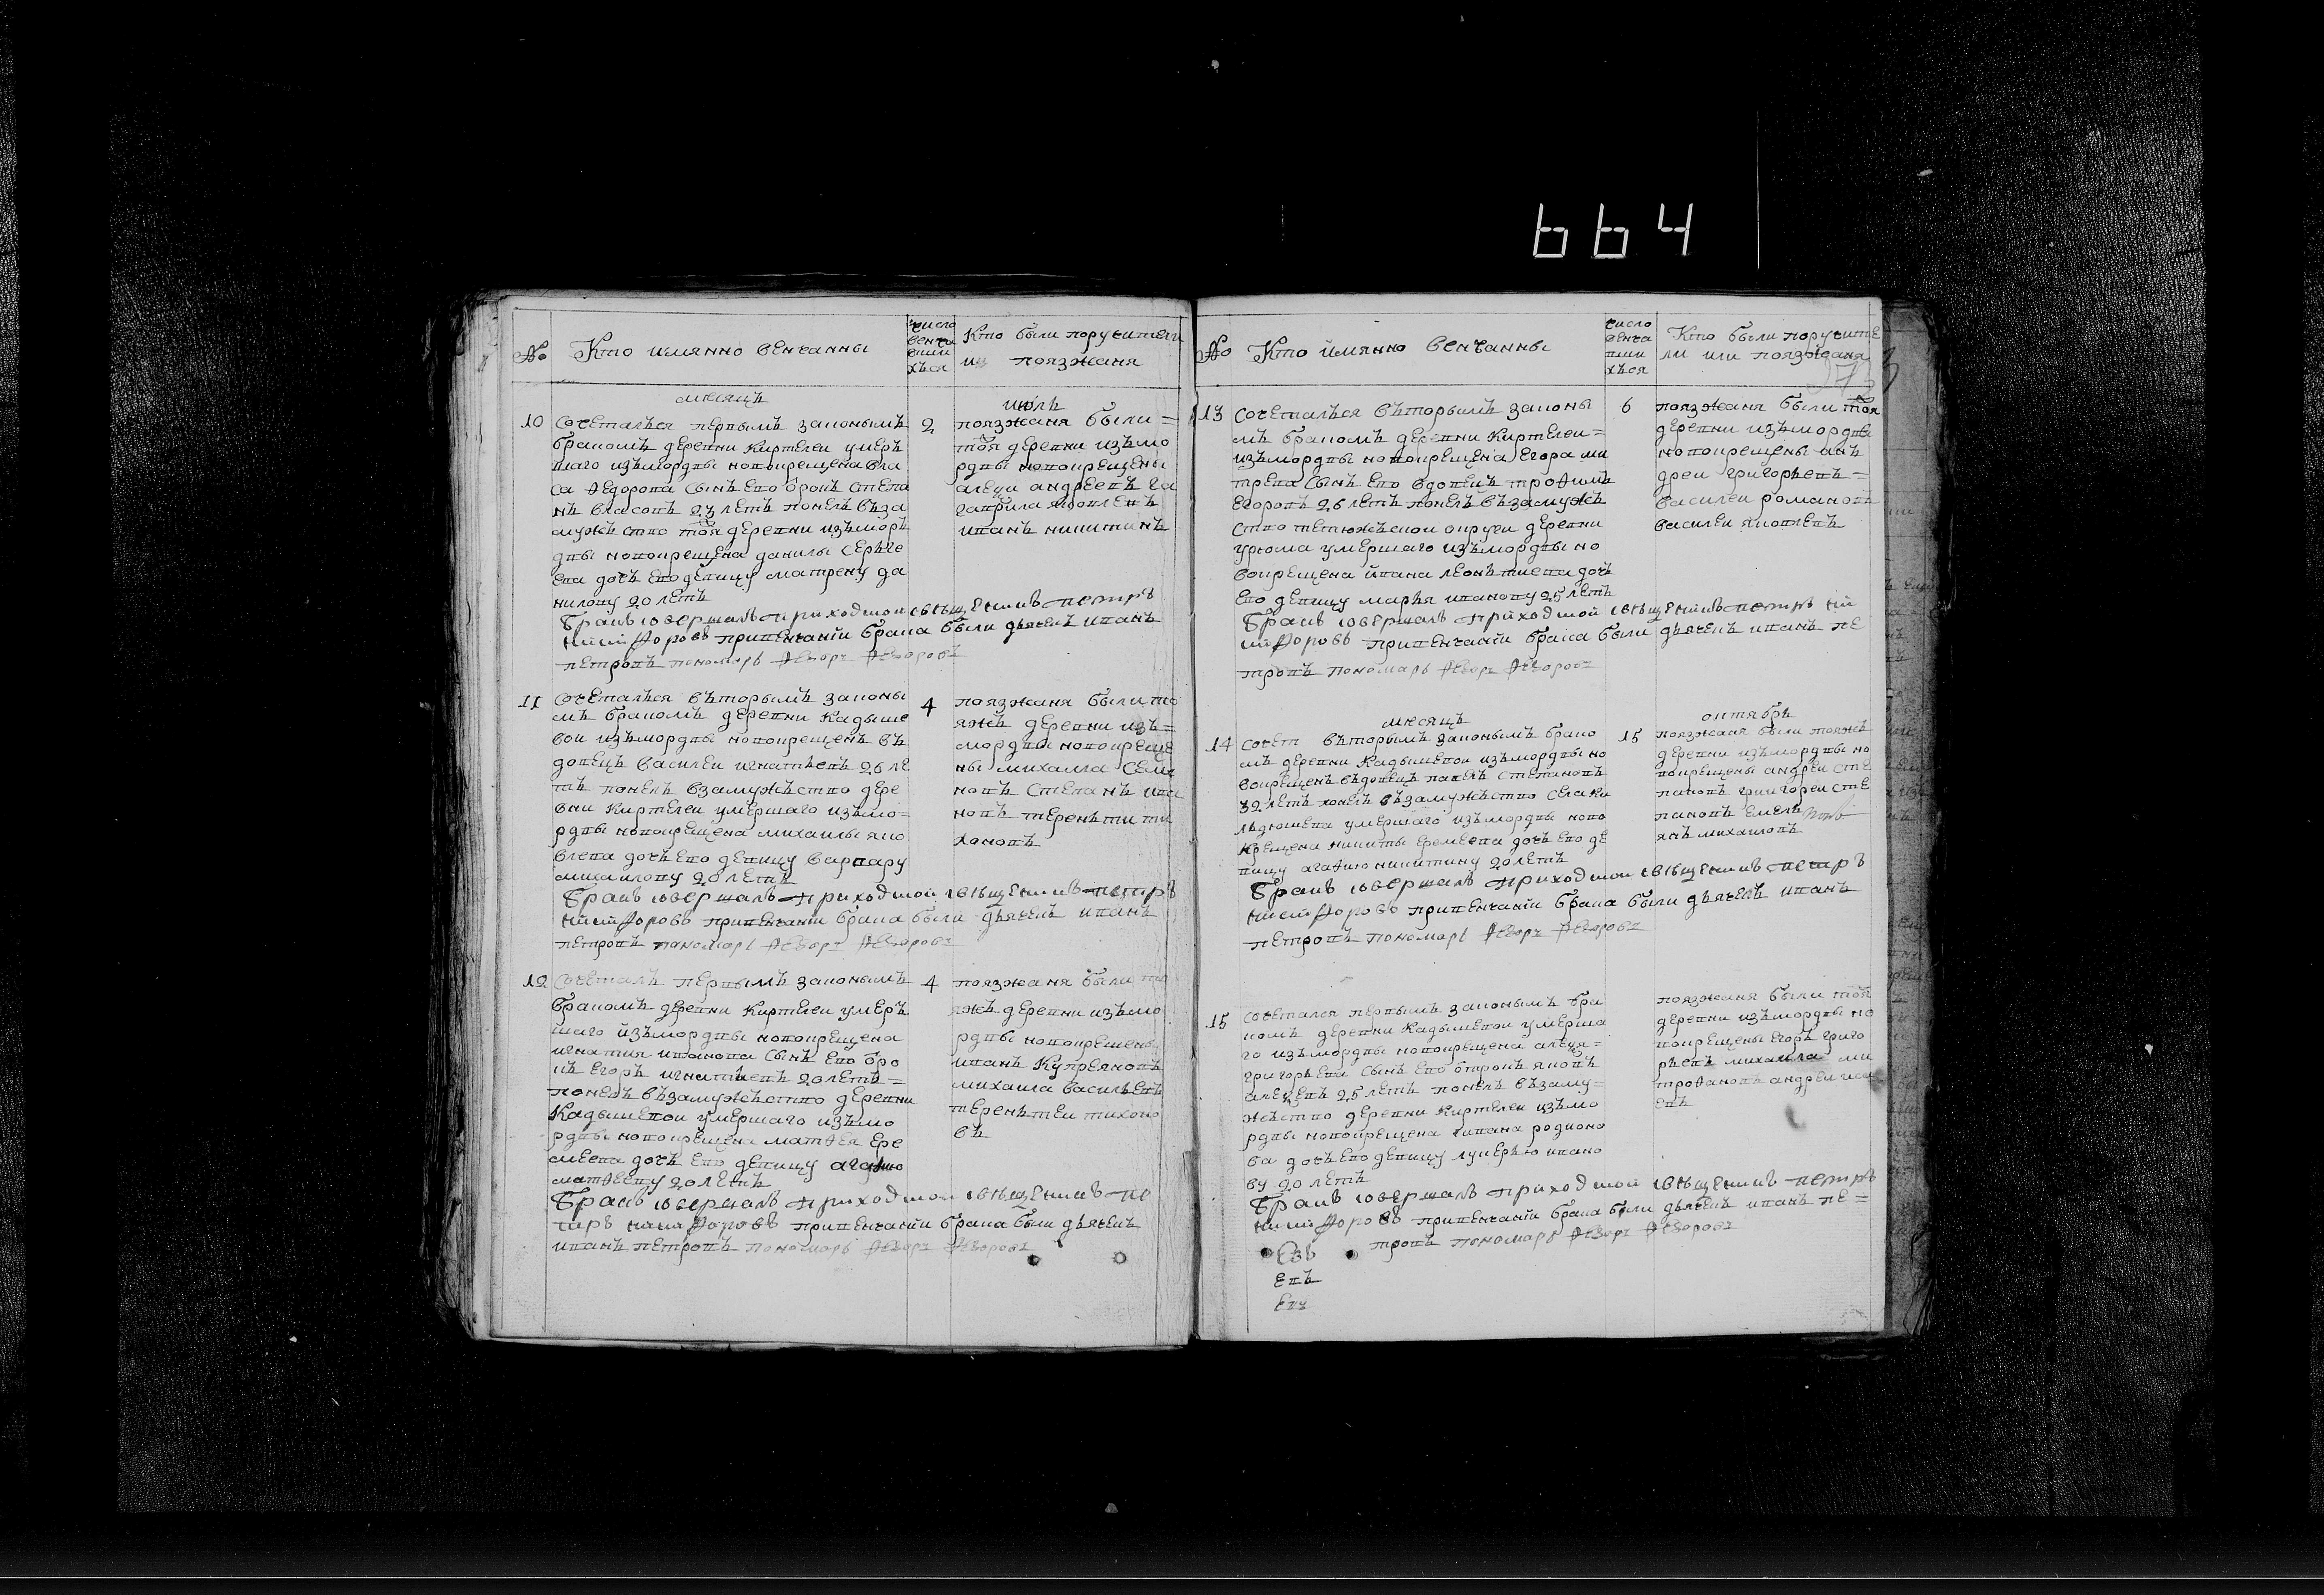 664
№
Кто имянно венчанны
число
венча
вши
хъся
Кто были поручители
и поязжаня
месяцъ
июль
10
сочеталъся первымъ законымъ
бракомъ деревни Киртелеи умеръ
шаго изъмордвы новокрещена вла
са Федорова сынъ ево брокъ степа
нъ власовъ 23 летъ понелъ въза
мужъство тоя деревни изъморъ
двы новокрещена данилы серьге
ева дочь ево девицу матрену да
нилову 20 летъ
2
поязжаня были =
тоя деревни изъмо
рдвы новокрещены
алеѯи андреевъ га
гаврила яковлевъ
иванъ никитинъ
бракъ совершалъ приходской священникъ петръ
никифоровъ привенчании брака были дьячекъ иванъ
петровъ пономарь Федоръ Федоровъ
11
сочеталъся въторымъ законы
мъ бракомъ деревни Кадыше
вои изъмордвы новокрещенъ въ
довецъ василеи игнатьевъ 26 ле
тъ понелъ взамужъство дере
вни Киртелеи умершаго изъмо=
рдвы новокрещена михаилы яко
влева дочь ево девицу варвару
михаилову 20 летъ
4
поязжаня были то
яжъ деревни изъ=
мордвы новокреще
ны михаила семе
новъ степанъ ива
новъ тереньти ти
хоновъ
бракъ совершалъ приходской священникъ петръ
никифоровъ привенчании брака были дьячекъ иванъ
петровъ пономарь Федоръ Федоровъ
12
сочеталъ первымъ законымъ
бракомъ деревни Киртелеи умеръ
шаго изъмордвы новокрещена
игнатия иванова сынъ ево бро
къ егоръ игнатьевъ 20 летъ =
понелъ възамужъство деревни
Кадышевои умершаго изъмо
рдвы новокрещена матѳея ере
меева дочь ево девицу агафию
матѳееву 20 летъ
4
поязжаня были то
яжъ деревни изъмо
рдвы новокрещены
иванъ Купреяновъ
михаила васильевъ
терентеи тихоно
въ
бракъ совершалъ приходской священникъ пе
тръ никифоровъ привенчании брака были дьячекъ
иванъ петровъ пономарь Федоръ Федоровъ
№
Кто имянно венчанны
число
венча
вши
хъся
Кто были поручите
ли или поязжаня
13
сочеталъся въторымъ законы
мъ бракомъ деревни Киртелеи =
изъмордвы новокрещена егора ми
трева сынъ ево вдовецъ трофимъ
егоровъ 26 летъ понелъ възамужъ
ство тетюжъскои округи деревни
урюма умершаго изъмордвы но
вокрещена ивана леонътиева дочь
ево девицу марья иванову 25 летъ
6
поязжаня были тоя
деревни изъмордвы
новокрещены анъ
дреи григорьевъ =
василеи романовъ
василеи яковлевъ
бракъ совершалъ приходской священникъ петръ ни
кифоровъ привенчании брака были дьячекъ иванъ пе
тровъ пономарь Федоръ Федоровъ
месяцъ
октябрь
14
сочет въторымъ законымъ брако
мъ деревни Кадышевои изъмордвы но
вокрещенъ въдовецъ павелъ степановъ
32 летъ понелъ възамужъство села Ки
льдюшева умершаго изъмордвы ново
крещена никиты еремеева дочь ево де
вицу агафию никитину 20 летъ
15
поязжаня были тояжъ
деревни изъмордвы но
вокрещены андреи сте
пановъ григореи сте
пановъ емель
янъ михаиловъ
бракъ совершалъ приходской священникъ петръ
никифоровъ привенчании брака были дьячекъ иванъ
петровъ пономарь Федоръ Федоровъ
15
сочетался первымъ законымъ бра
комъ деревни Кадышевои умерша
го изъмордвы новокрещена алеѯя=
григорьева сынъ ево отрокъ яковъ
алеѯевъ 25 летъ понелъ възаму=
жъство деревни Киртелеи изъмо
рдвы новокрещена ивана родионо
ва дочь ево девицу лукерью ивано
ву 20 летъ
поязжаня были тоя
деревни изъмордвы но
вокрещены егоръ григо
рьевъ михаила ми
трофановъ андреи
евъ
бракъ совершалъ приходской священникъ петръ
никифоровъ привенчании брака были дьячекъ иванъ пе=
тровъ пономарь Федоръ Федоровъ
евъ